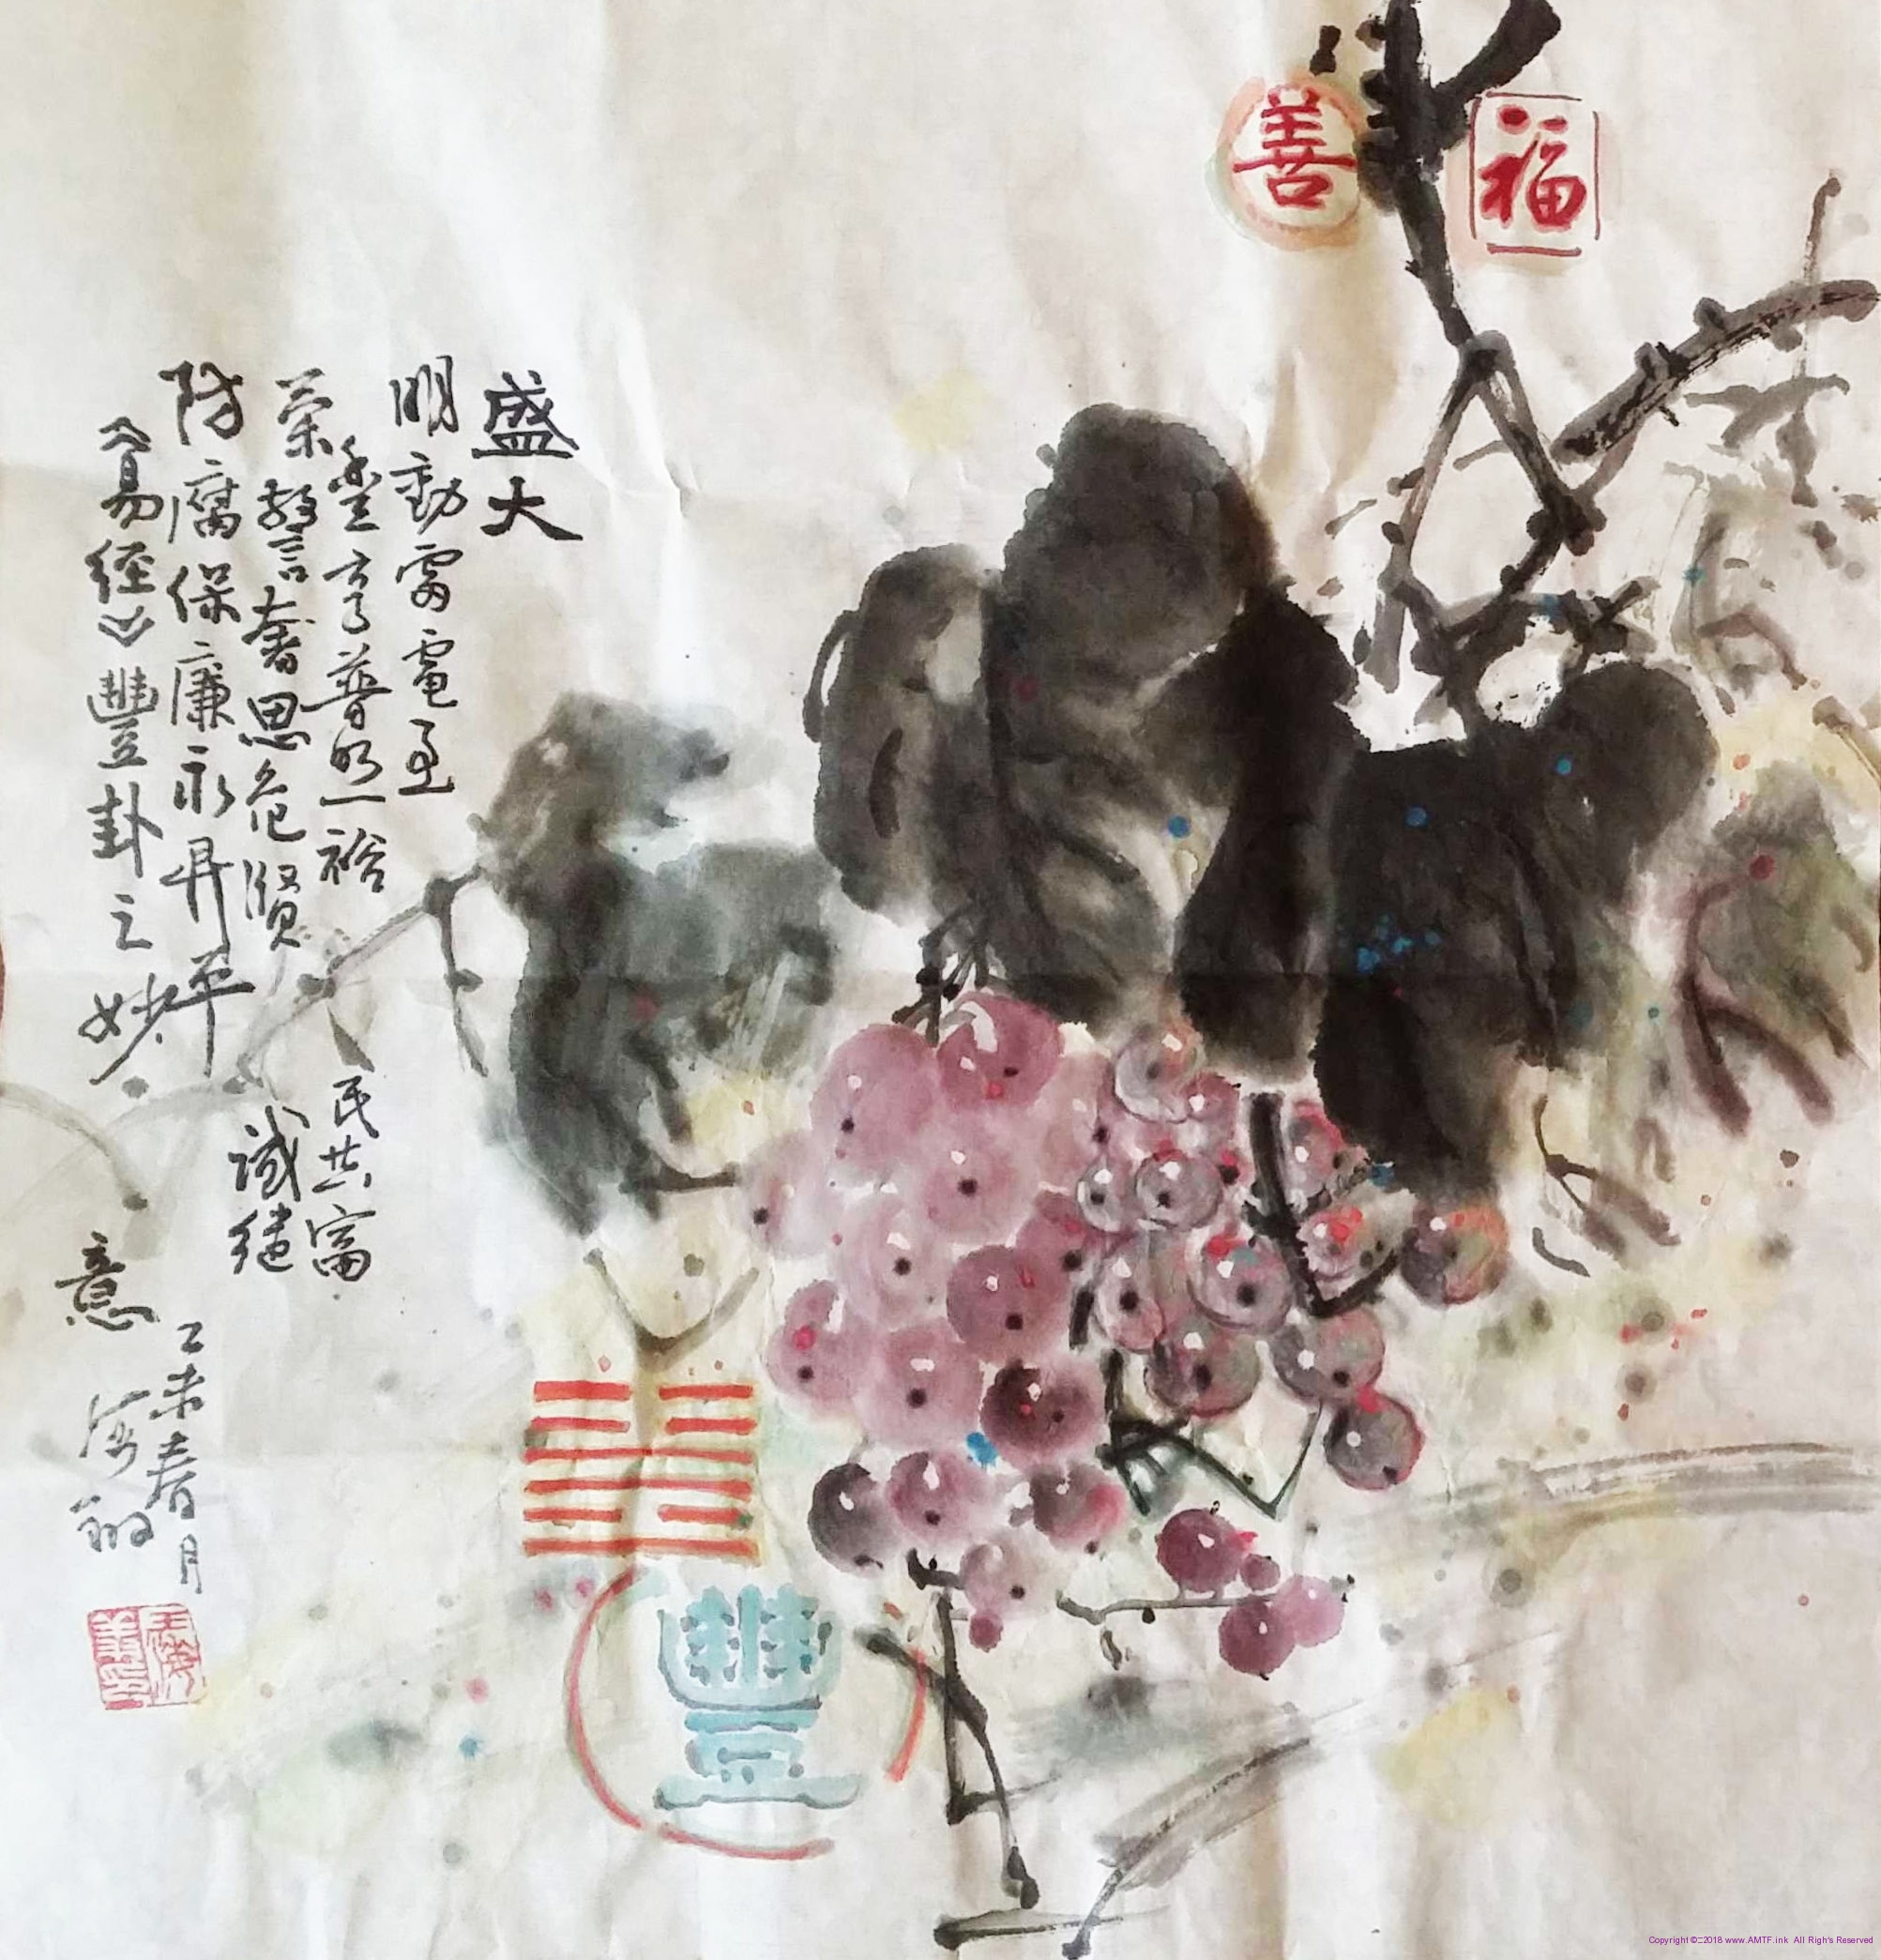 善
福
盛大
明動雷電至
豐亨普照一裕民共富
榮警言奢思危賢誠繼
防腐保廉永昇平
《易经》豐卦之妙意
乙未春月
海
豐
Copyright ©2018 www.AMTF.ink All Rights Reserved